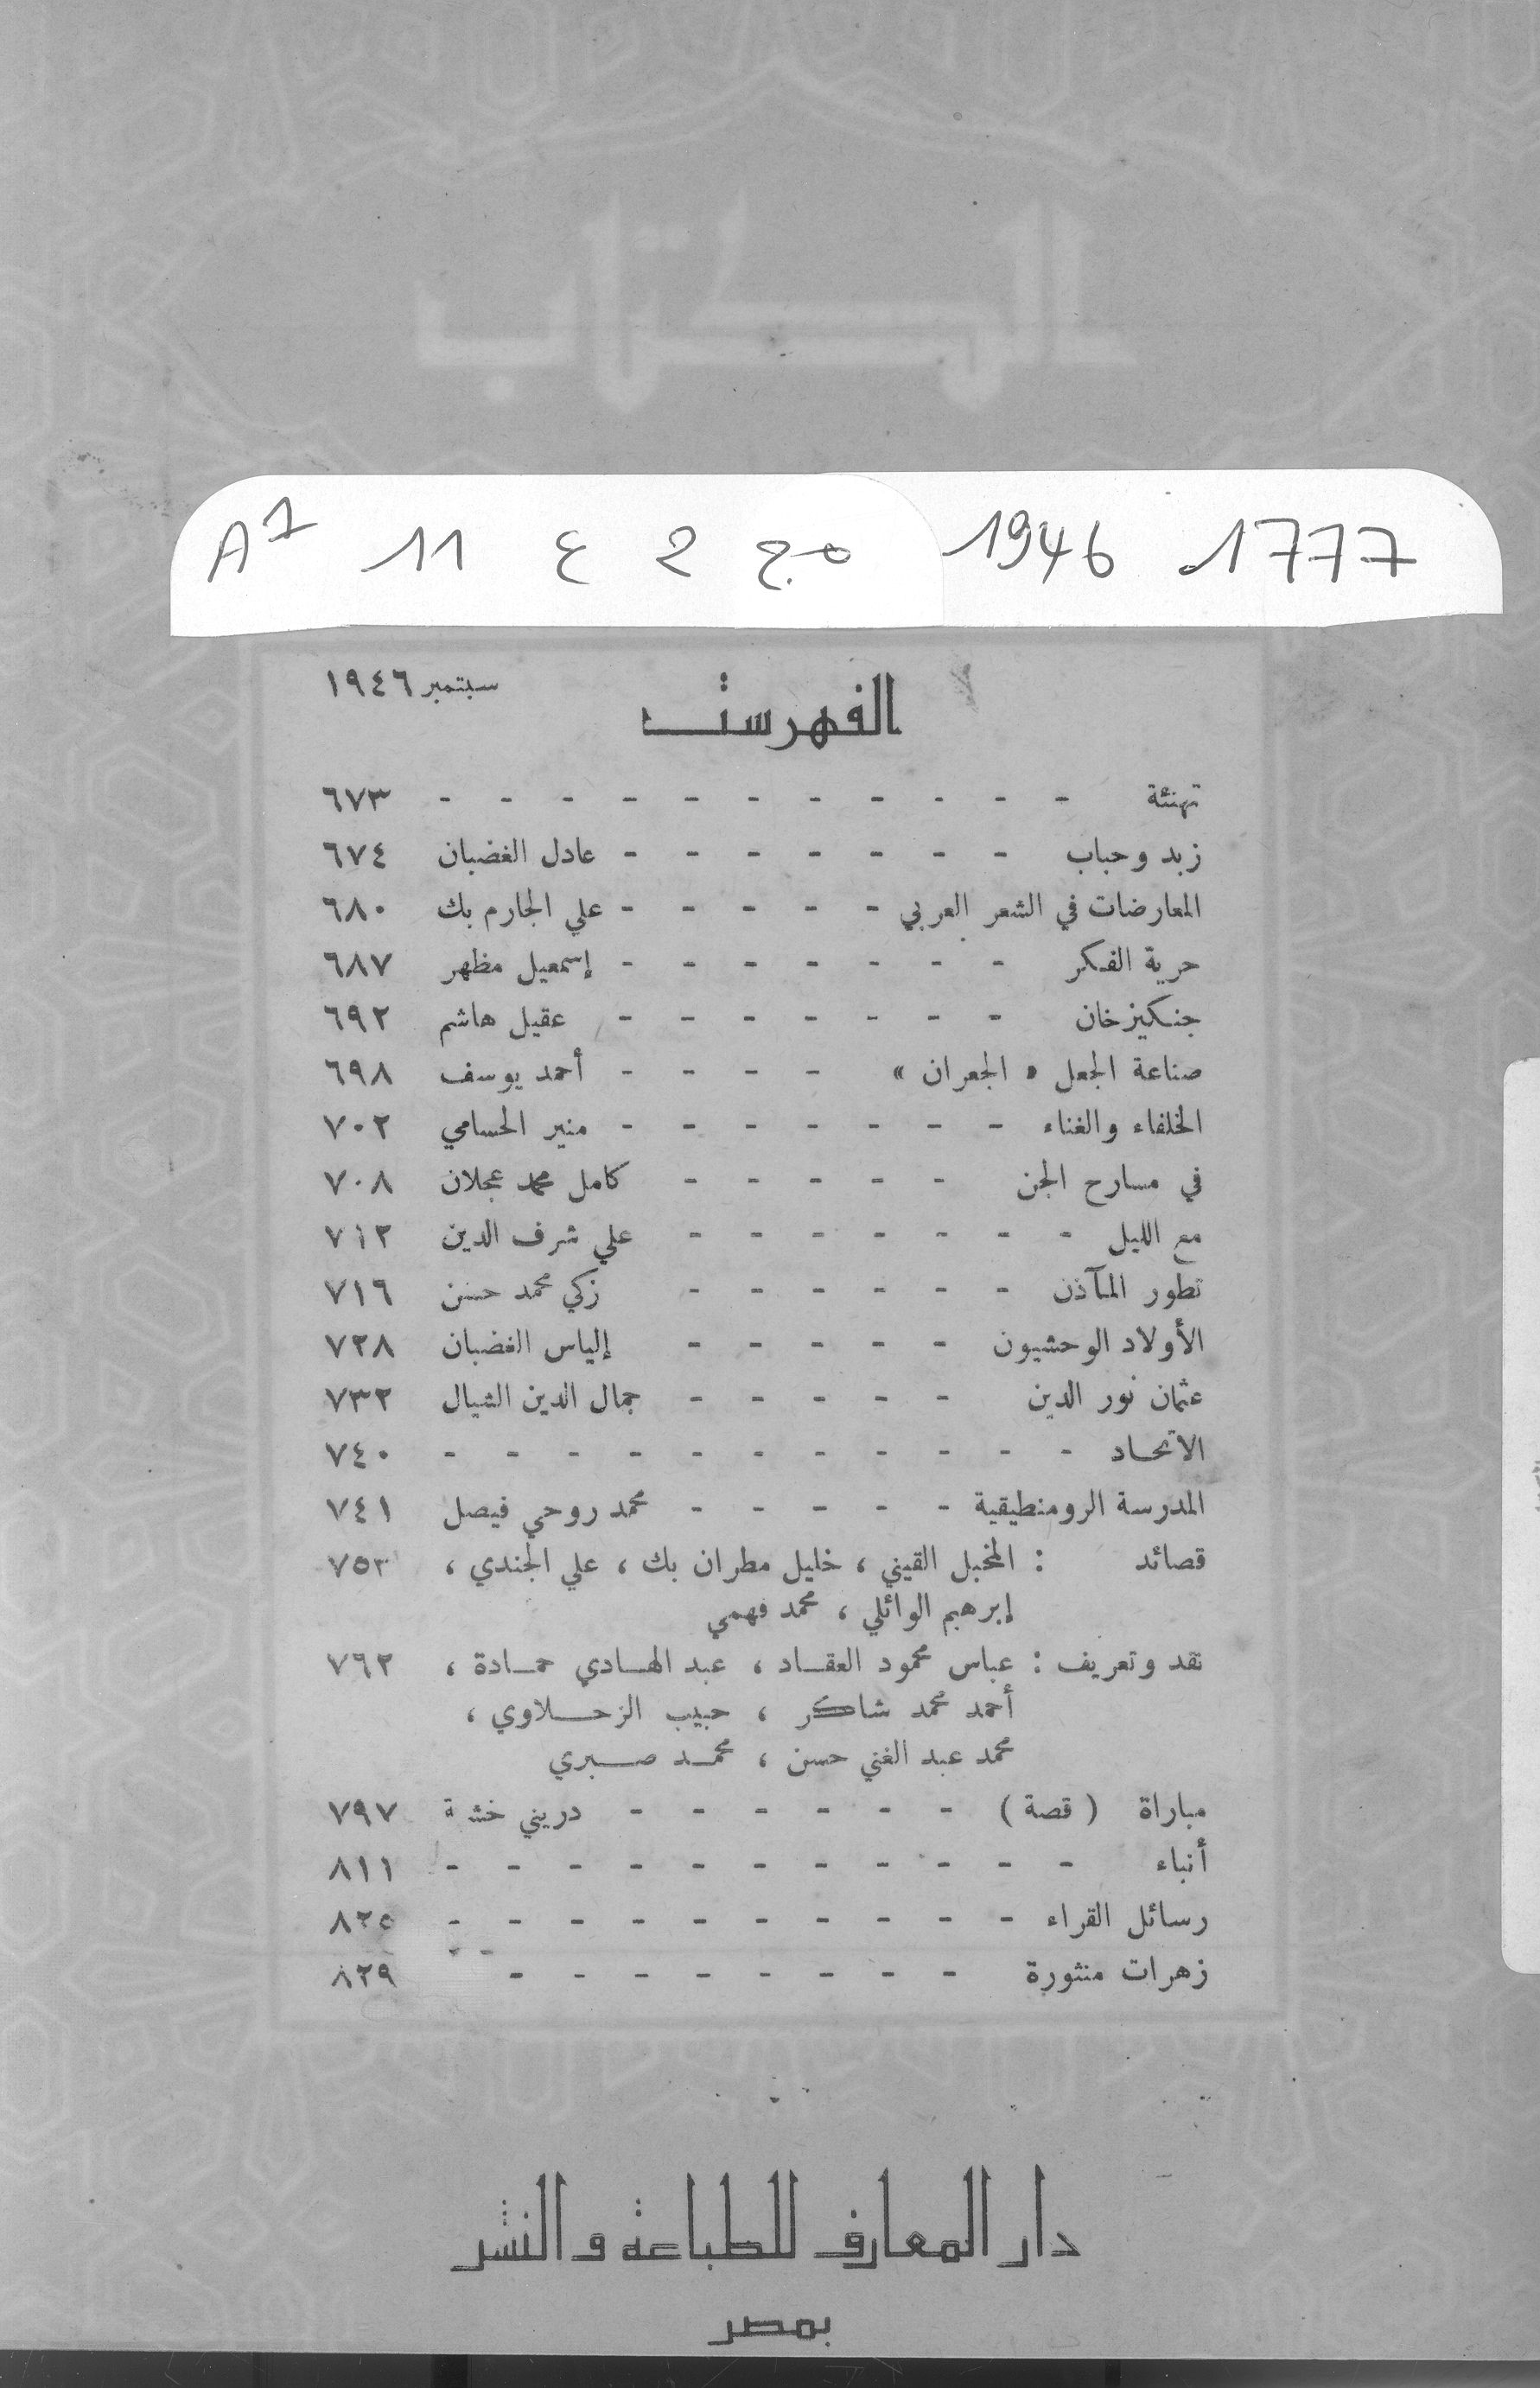 الكتاب
A7 11 ع 2 مج 1946 1777
الفهرست سبتمبر ١٩٤٦
تهنئة - - - - - - - - - - - ٦٧٣
زبد وحباب - - - - - - - عادل الغضبان ٦٧٤
المعارضات في الشعر العربي - - - - - علي الجارم بك ٦٨٠
حرية الفكر - - - - - - - إسمعيل مظهر ٦٨٧
جنكيزخان - - - - - - - عقيل هاشم ٦٩٢
صناعة الجعل « الجعران » - - - - أحمد يوسف ٦٩٨
الخلفاء والغناء - - - - - - - منير الحسامي ٧٠٢
في مسارح الجن - - - - - كامل محمد عجلان ٧٠٨
مع الليل - - - - - - - علي شرف الدين ٧١٢
تطور المآذن - - - - - - زكي محمد حسن ٧١٦
الأولاد الوحشيون - - - - - إلياس الغضبان ٧٢٨
عثمان نور الدين - - - - - جمال الدين الشيال ٧٣٢
الاتحاد - - - - - - - - - - - ٧٤٠
المدرسة الرومنطيقية - - - - - محمد روحي فيصل ٧٤١
قصائد : المخبل القيني ، خليل مطران بك ، علي الجندي ، ٧٥٣
إبرهيم الوائلي ، محمد فهمي
نقد وتعريف : عباس محمود العقاد ، عبد الهادي حمادة ، ٧٦٢
أحمد محمد شاكر ، حبيب الزحلاوي ،
محمد عبد الغني حسن ، محمد صبري
مباراة ( قصة ) - - - - - - دريني خشبة ٧٩٧
أنباء - - - - - - - - - - - ٨١١
رسائل القراء - - - - - - - - - - ٨٢٥
زهرات منثورة - - - - - - - - ٨٢٩
دار المعارف للطباعة والنشر
بمصر